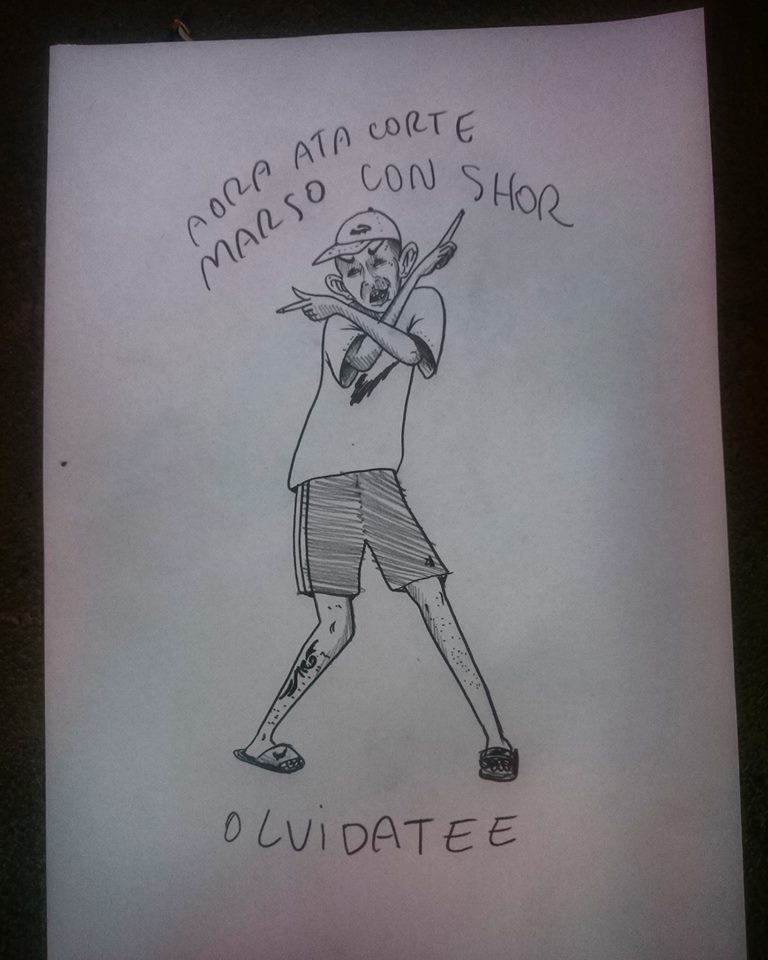 AORA ATA CORTE
MARSO CON SHOR
OLVIDATEE